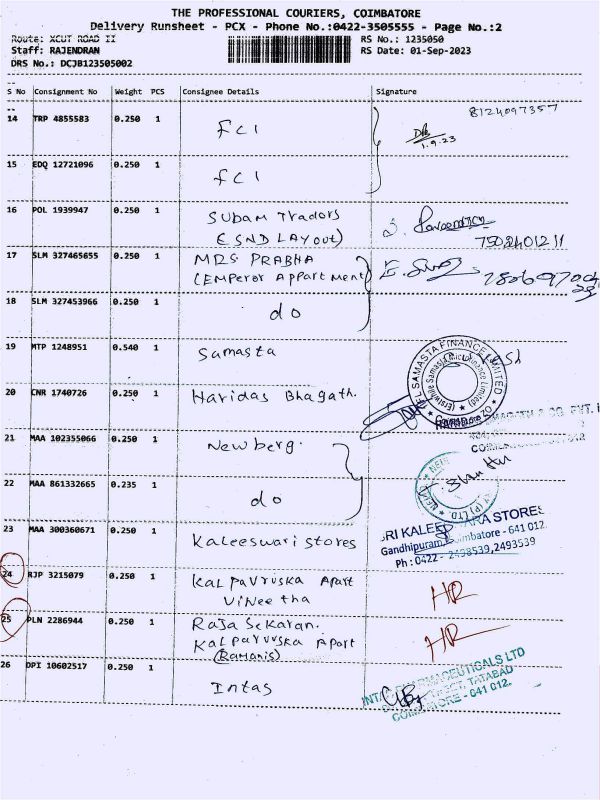 THE PROFESSIONAL COURIERS, COIMBATORE
Delivery Runsheet - PCX - Phone No.:0422-3505555 - Page No.:2
Route: XCUT ROAD II RS No.: 1235050
Staff: RAJENDRAN RS Date: 01-Sep-2023
DRS No.: DCJB123505002
S No Consignment No Weight PCS Consignee Details Signature
8124097357
14 TRP 4855583 0.250 1 FCI
1.9.23
15 EDQ 12721096 0.250 1 FCI
16 POL 1939947 0.250 1 Subam Tradors
(SND LAYout) 7502401211
17 SLM 327465655 0.250 1 MRS PRABHA
(Emperor Appartment)
18 SLM 327453966 0.250 1 do
19 MTP 1248951 0.540 1 Samasta
SAMASTA FINANCE LIMITED
20 CNR 1740726 0.250 1 Haridas Bhagath.
21 MAA 102355066 0.250 1 Newberg.
22 MAA 861332665 0.235 1 do
23 MAA 300360671 0.250 1 Kaleeswari Stores
STORES
Gandhipuram, Coimbatore - 641 012.
Ph : 0422 - 2498539,2493539
24 RJP 3215079 0.250 1 Kalpavruska Apart
Vineetha
HR
25 PLN 2286944 0.250 1 Raja Sekaran.
Kalpavruska Apart
(Ramanis)
HR
26 DPI 10602517 0.250 1 Intas
TATABAD
COIMBATORE - 041 012.